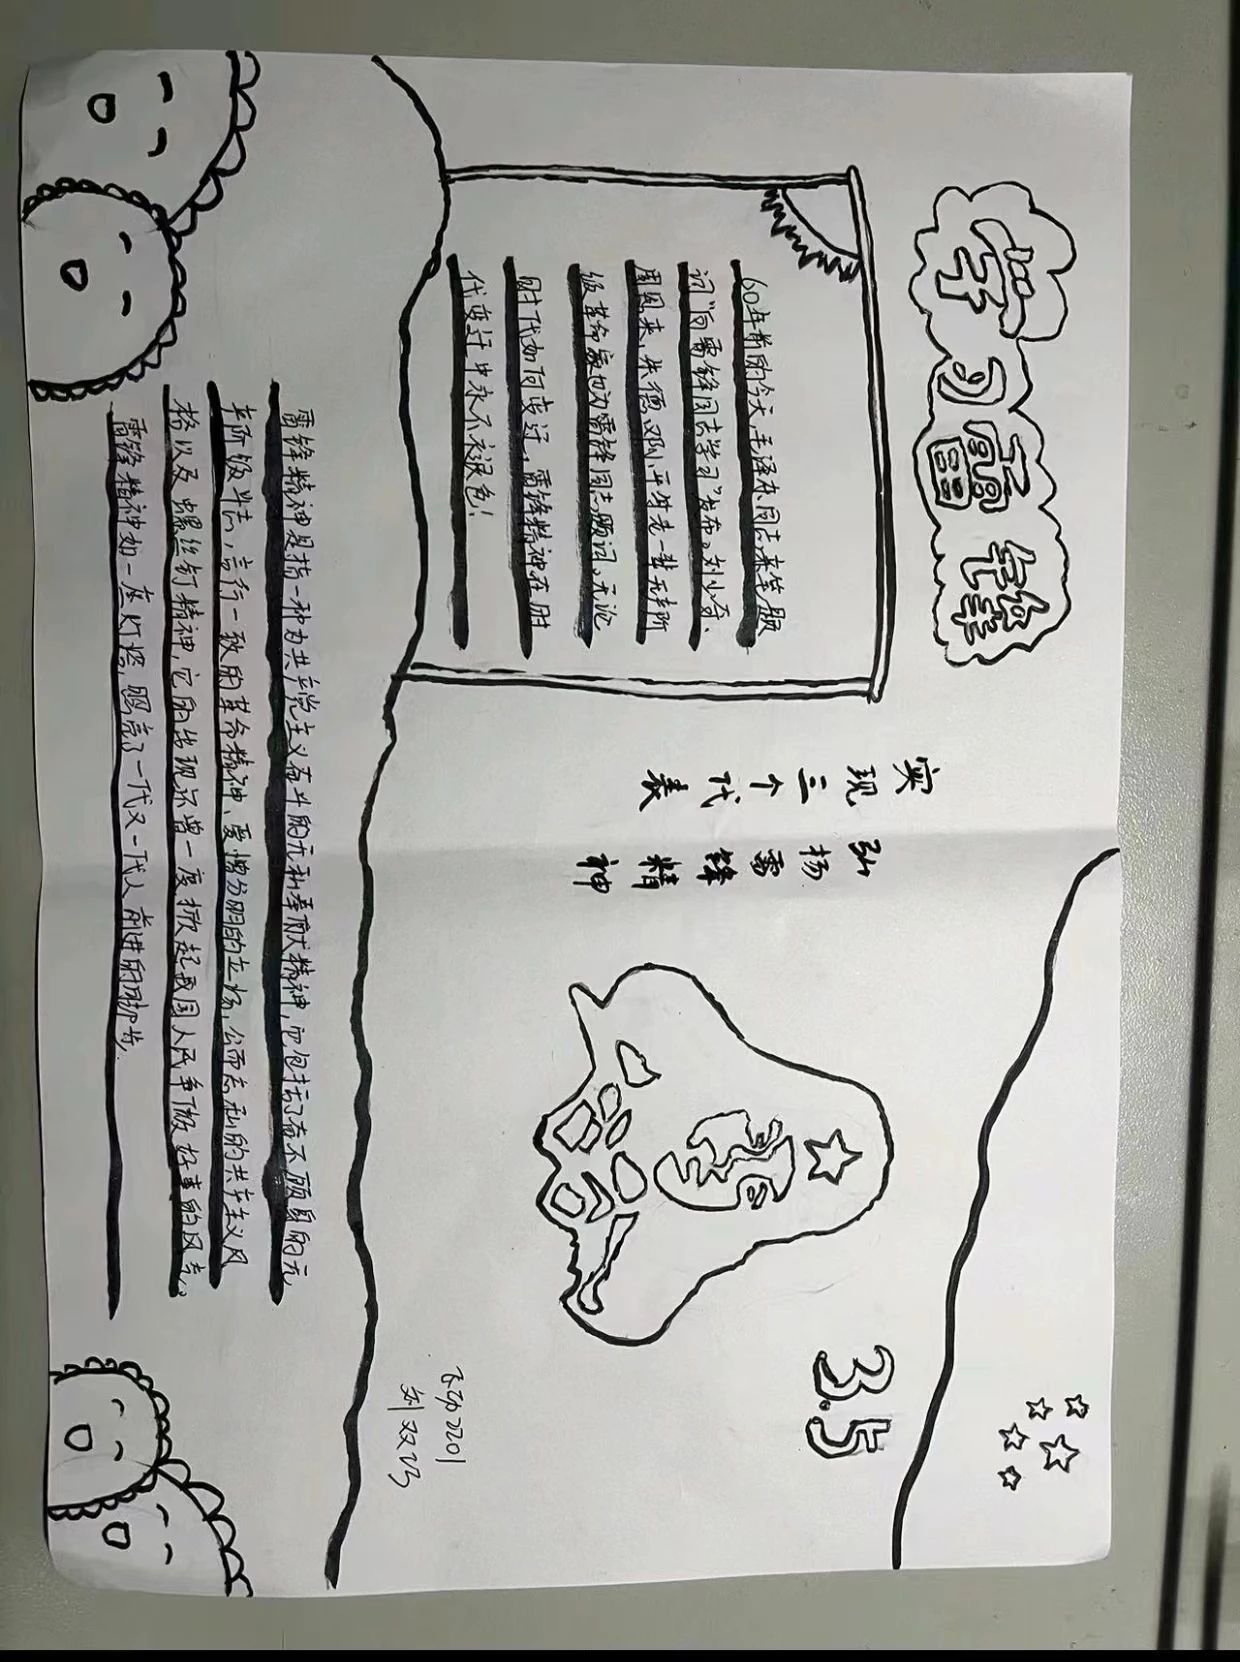 学习雷锋
60年前的今天,毛泽东同志亲笔题
词"向雷锋同志学习"发布。刘少奇、
周恩来,朱德、邓小平等老一辈无产阶
级革命家也为雷锋同志题词。无论
时代如何变迁,雷锋精神在时
代变迁中永不褪色!
实现三个代表
弘扬雷锋精神
3.5
雷锋精神是指一种为共产党主义奋斗的无私奉献精神,它包括了奋不顾身的无
产阶级斗志,言行一致的革命精神、爱憎分明的立场,公而忘私的共产主义风
格以及螺丝钉精神,它的出现不曾一度掀起我国人民争做好事的风气。
雷锋精神如一座灯塔,照亮了一代又一代人前进的脚步.
2201
刘双巧